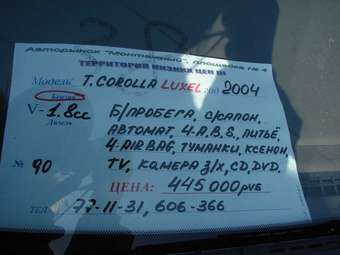 Авторынок "Монтажный", площадка № 4
ТЕРРИТОРИЯ НИЗКИХ ЦЕН !!!
Модель T. COROLLA LUXEL год 2004
Бензин
V- 1.8 cc Б/ПРОБЕГА, С/САЛОН,
Дизель АВТОМАТ, 4.A.B.S, ЛИТЬЁ,
4 AIR BAG, ТУМАНКИ, КСЕНОН,
№ 90 TV, КАМЕРА З/Х, CD, DVD.
ЦЕНА: 445 000 РУБ
ТЕЛ 77-11-31, 606-366